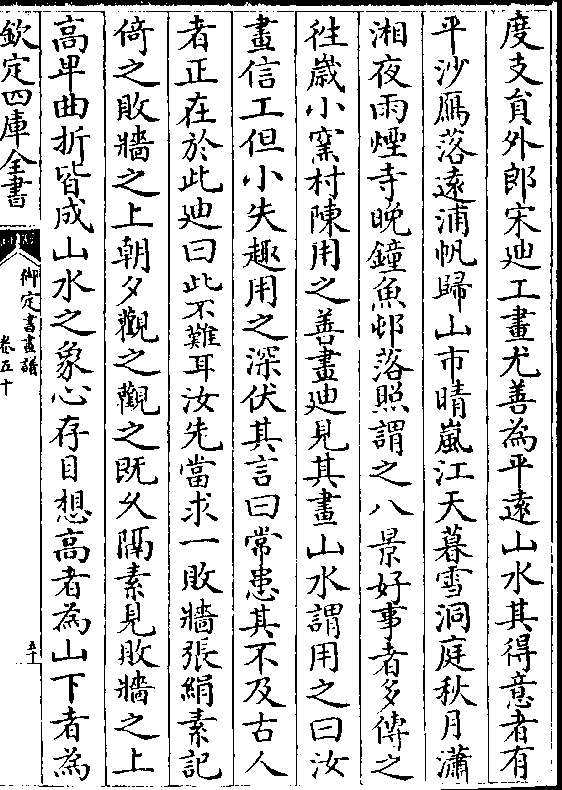 度支貟外郎宋廸工畫尤善為平遠山水其得意者有
平沙鴈落遠浦帆歸山市晴嵐江天暮雪洞庭秋月瀟
湘夜雨煙寺晚鐘魚邨落照謂之八景好事者多傳之
徃嵗小窯村陳用之善畫廸見其畫山水謂用之曰汝
畫信工但小失趣用之深伏其言曰常患其不及古人
者正在於此廸曰此不難耳汝先當求一敗牆張絹素訖
倚之敗牆之上朝夕觀之觀之既久隔素見敗牆之上
高卑曲折皆成山水之象心存目想高者為山下者為
欽定四庫全書
御定書畫譜
卷五十